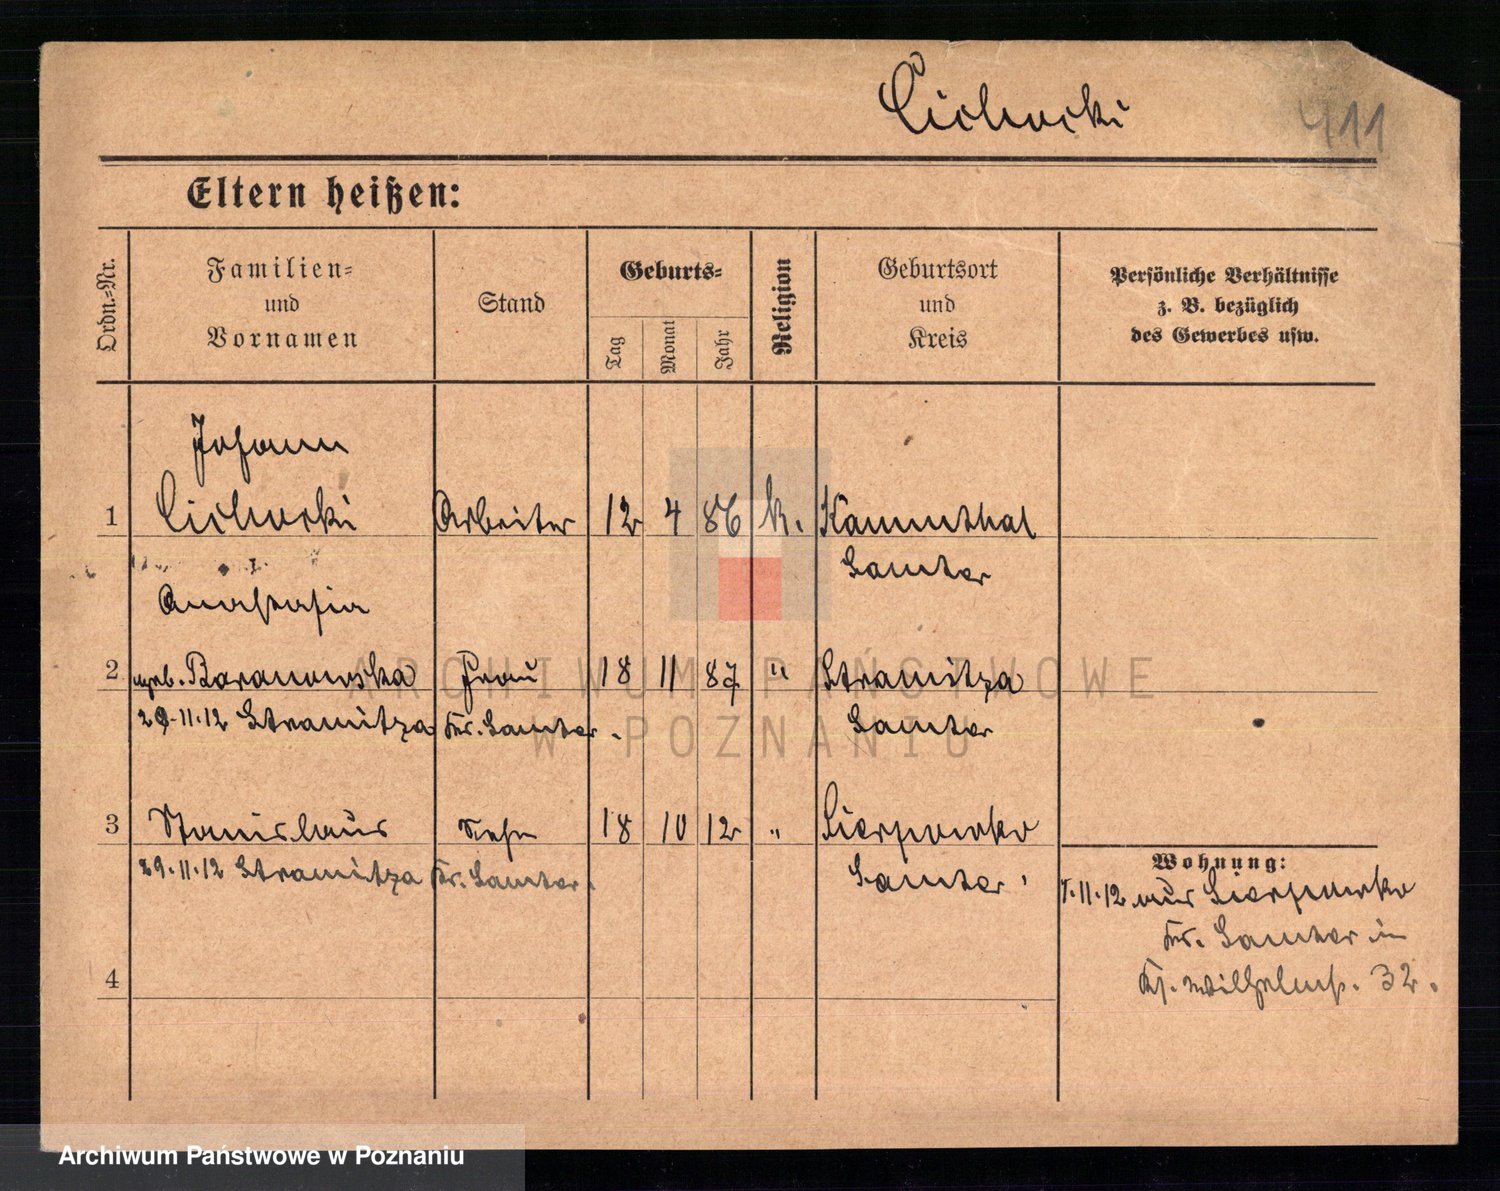 Cichocki
411
Eltern heißen:
Ordn.-Nr.
Familien-
und
Vornamen
Stand
Geburts-
Tag
Monat
Jahr
Religion
Geburtsort
und
Kreis
Persönliche Verhältnisse
z. B. bezüglich
des Gewerbes usw.
Johann
1 Cichocki Arbeiter 12 4 86 k. Kammthal
Samter
Anastasia
2 geb. Baranowska Frau 18 11 87 " Stramitza
29.11.12 Stramitza Kr. Samter. Samter
3 Stanislaus Sohn 18 10 12 " Sierpowko
29.11.12 Stramitza Kr. Samter. Samter
Wohnung:
7.11.12 aus Sierpowko
Kr. Samter in
Wilhelmst. 32.
4
ARCHIWUM PAŃSTWOWE
W POZNANIU
Archiwum Państwowe w Poznaniu